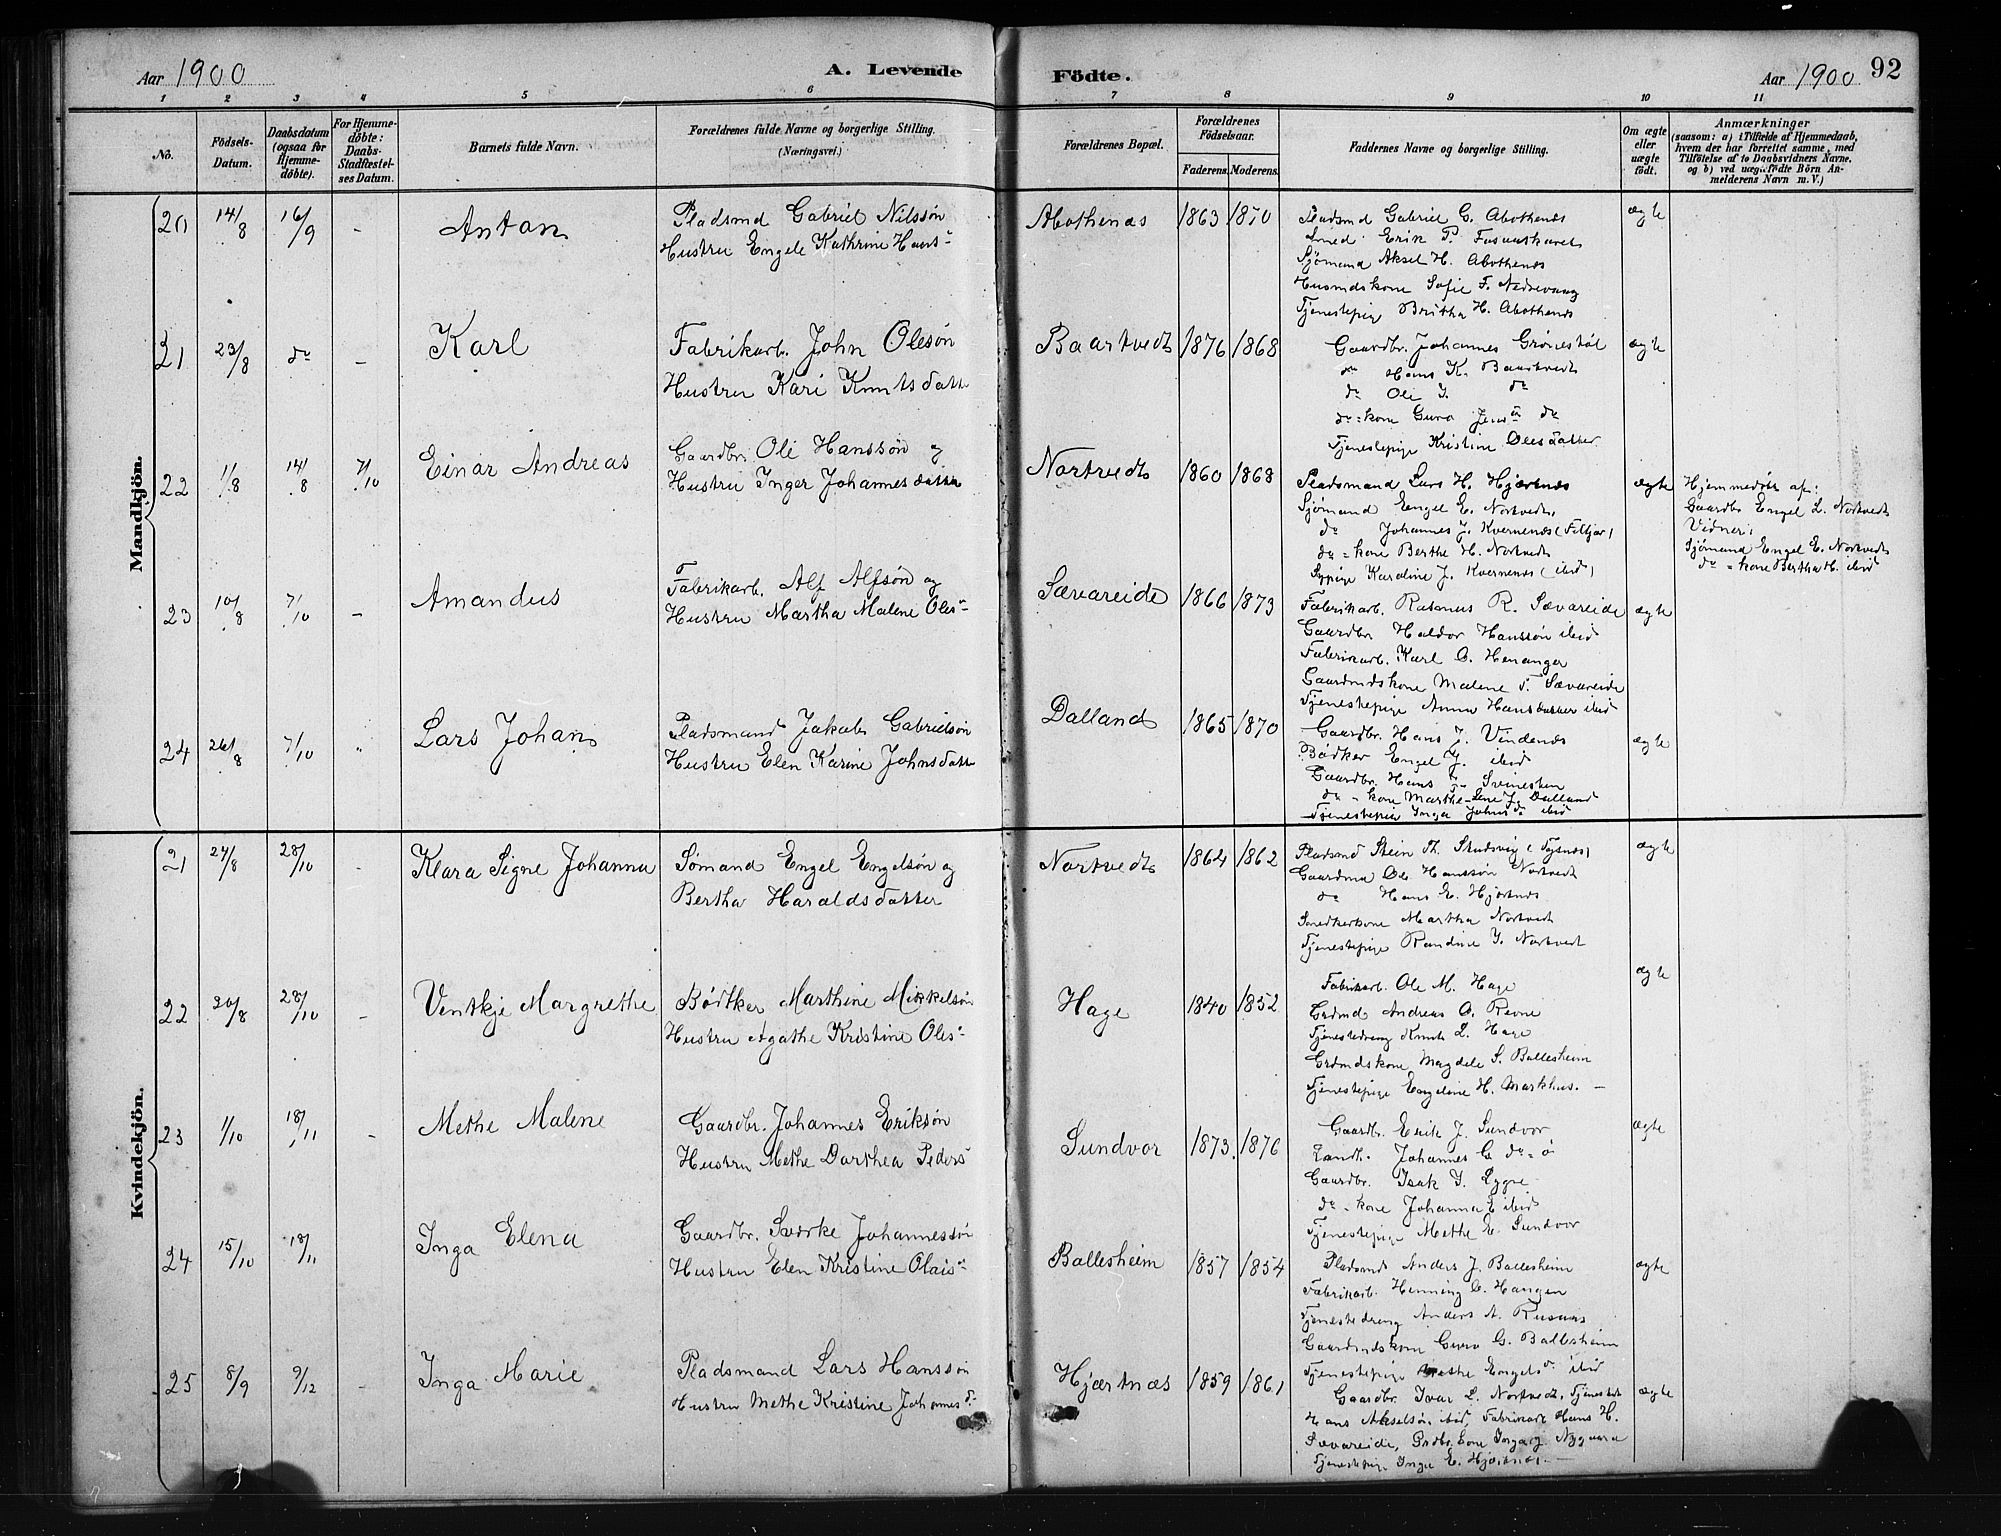 Aar 1900
A. Levende
Födte.
Aar 1900
92
1 2 3 4 5 6 7 8 9 10 11
No.
Födsels-Datum.
Daabsdatum (ogsaa for Hjemme-döbte).
For Hjemme-döbte: Daabs-Stadfæstel-ses Datum.
Barnets fulde Navn.
Forældrenes fulde Navne og borgerlige Stilling.
(Næringsvei.)
Forældrenes Bopæl.
Forældrenes Födselsaar.
Faderens. Moderens.
Faddernes Navne og borgerlige Stilling.
Om ægte eller uægte födt.
Anmærkninger
(saasom: a) i Tilfælde af Hjemmedaab, hvem der har forrettet samme, med Tilföielse af to Daabsvidners Navne, og b) ved uægte födte Börn An-melderens Navn m. V.)
Mandkjön.
20 14/8 16/9 - Antan
Pladsmd Gabriel Nilssøn
Hustru Engele Kathrine Hans-
Abothenæs 1863 1870
Pladsmd Gabriel G. Abothenæs
Erik P.
Sjømand Aksel H. Abothenæs
Husmdskone Sofie F. Nedrevaag
Tjenestepige Britha H. Abothenæs
ægte
21 23/8 do - Karl
Fabrikarb. John Olesøn
Hustru Kari Knutsdatter
Baartvedt 1876 1868
Gaardbr. Johannes Grønestøl
do Hans K. Baartvedt
do Ole J. do
do-kone Guro Jensd do
Tjenestepige Kristine Olesdatter
ægte
22 1/8 14/8 7/10 Einar Andreas
Gaardbr. Ole Hanssøn og
Hustru Inger Johannesdatter
Nortvedt 1860 1868
Pladsmand Lars H. Hjærtnæs
Sjømand Engel E. Nortvedt,
do Johannes J. Kvernenæs (Fitjar)
do-kone Berthe H. Nortvedt
Sypige Karoline J. Kvernenæs (ibid)
ægte
Hjemmedøbt af:
Gaardbr Engel L. Nortvedt
Vidner:
Sjømand Engel E. Nortvedt
do-kone Bertha H. ibid
23 10/8 7/10 - Amandus
Fabrikarb. Alf Alfsøn og
Hustru Martha Malene Oles-
Sævareide 1866 1873
Fabrikarb. Rasmus R. Sævareide
Gaardbr Haldor Hanssøn ibid
Fabrikarb. Karl O. Henanger
Gaardmdskone Malene T. Sævareide
Tjenestepige Anna Hansdatter ibid
ægte
24 26/8 7/10 " Lars Johan
Pladsmand Jakob Gabrielsøn
Hustru Elen Karine Johnsdatter
Dalland 1865 1870
Gaardbr. Hans J. Vindenæs
Bødker Engel J. ibid
Gaardbr. Hans
do-kone Marthe-Lene J. Dalland
Tjenestepige Inga Johnsd ibid
ægte
Kvindekjön.
21 24/8 28/10 - Klara Signe Johanna
Sømand Engel Engelsøn og
Bertha Haraldsdatter
Nortvedt 1864 1862
Pladsmd Stein Th. Skudsvig (Tysnæs)
Gaardmd Ole Hanssøn Nortvedt
do Hans E. Hjærtnæs
Snedkerkone Martha Nortvedt
Tjenestepige Randine J. Nortvedt
ægte
22 20/8 28/10 - Ventkje Margrethe
Bødtker Marthine Mikkelsøn
Hustru Agathe Kristine Oles-
Hage 1840 1852
Fabrikarb. Ole M. Hage
Grdmd Andreas O. Revne
Tjenestedreng Knut L. Hage
Grdmdskone Magdele S. Ballesheim
Tjenestepige Engeline H. Markhus. -
ægte
23 1/10 18/11 - Methe Malene
Gaardbr. Johannes Eriksøn
Hustru Methe Darthea Peders-
Sundvor 1873. 1876
Gaardb. Erik J. Sundvor
Landh. Johannes
Gaardbr. Isak J. Lygre
do-kone Johanna E ibid
Tjenestepige Methe E. Sundvor
ægte
24 15/10 18/11 Inga Elena
Gaardbr. Sværke Johannessøn
Hustru Elen Kristine Olais-
Ballesheim 1857 1854
Pladsmd Anders J. Ballesheim
Fabrikarb. Henning C. Haugen
Tjenestedreng Anders A. Rusnæs
Gaardmdskone Guro G. Ballesheim
Tjenestepige Methe Engelsd ibid
ægte
25 8/9 9/12 - Inga Marie
Pladsmand Lars Hanssøn
Hustru Methe Kristine Johannesd-
Hjærtnæs 1859 1861
Gaardbr. Ivar L. Nortvedt,
Hans Akselsøn ibid, Fabrikarb Hans H.
Sævareide, Nygaard
Tjenestepige Inga E. Hjærtnæs. -
ægte